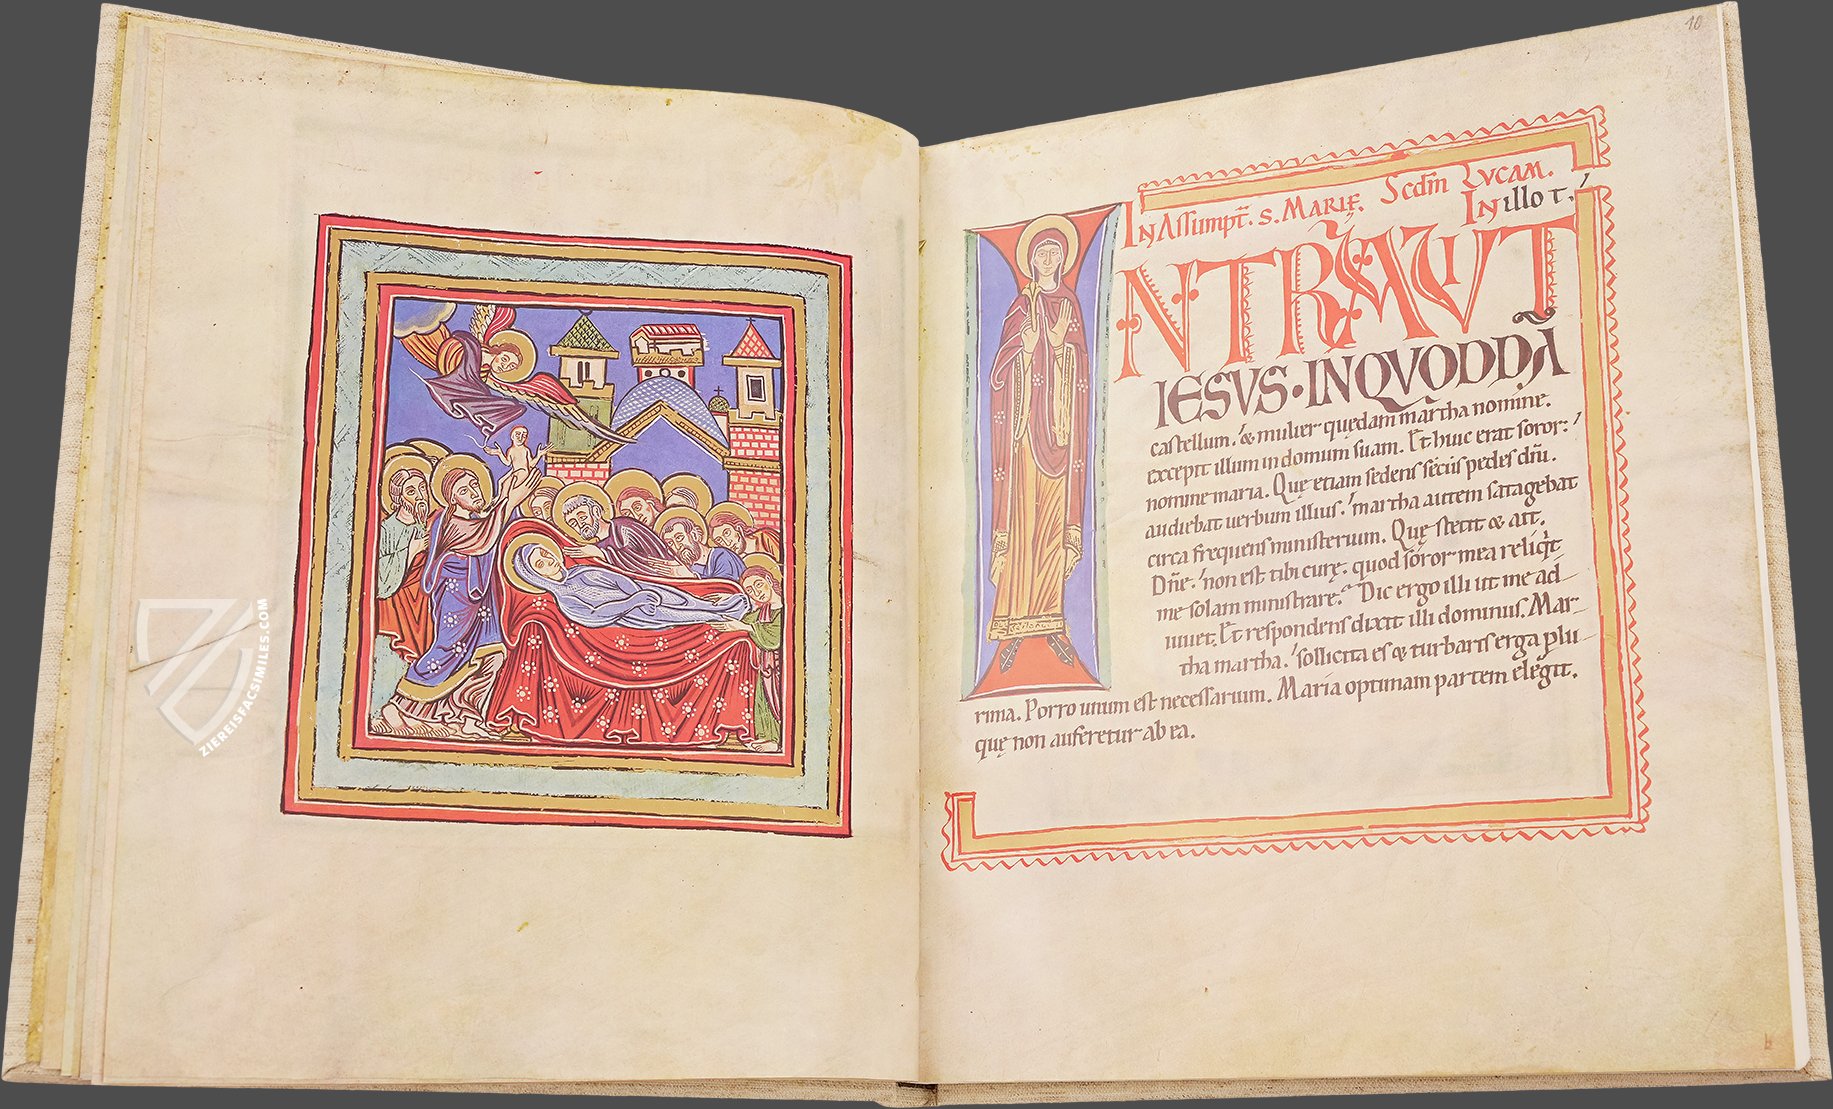 10
In Assumpt̄. S. Marię. Scdm̄ Lucam.
In illo t.
INTRAVIT
IESVS·IN QVODDĀ
castellum. & mulier quędam martha nomine.
excepit illum in domum suam. Et huic erat soror:
nomine maria. Quę etiam sedens secus pedes dn̄i.
audiebat uerbum illius. martha autem satagebat
circa frequens ministerium. Quę stetit & ait.
Dn̄e. non est tibi curę. quod soror mea reliq̇t
me solam ministrare. Dic ergo illi ut me ad
iuuet. Et respondens dixit illi dominus. Mar-
tha martha. sollicita es & turbaris erga plu
rima. Porro unum est necessarium. Maria optimam partem elegit.
quę non auferetur ab ea.
ZIEREISFACSIMILES.COM